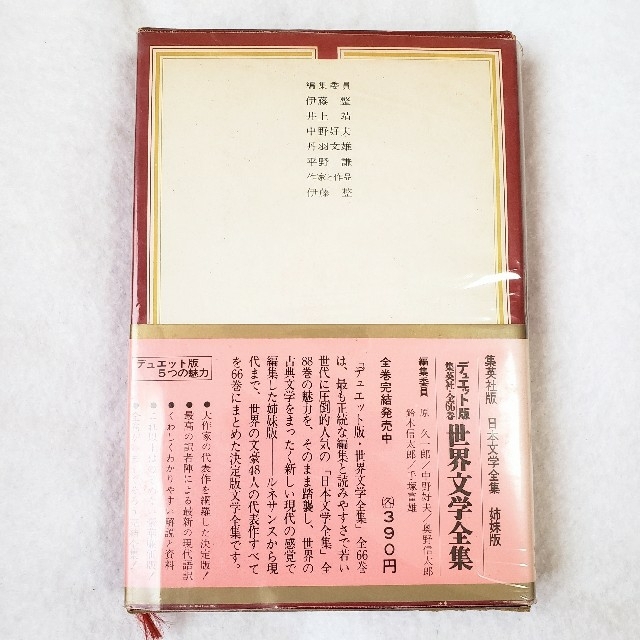 編集委員
伊藤 整
井上 靖
中野好夫
丹羽文雄
平野 謙
作家と作品
伊藤 整
集英社版 日本文学全集 姉妹版
デュエット版
集英社・全66巻
世界文学全集
編集委員
原 久一郎/中野好夫/奥野信太郎
鈴木信太郎/手塚富雄
全巻完結発売中
各390円
「デュエット版・世界文学全集」全66巻
は、最も正統な編集と読みやすさで若い
世代に圧倒的人気の「日本文学全集」全
88巻の魅力を、そのまま踏襲し、世界の
古典文学をまったく新しい現代の感覚で
編集した姉妹版──ルネサンスから現
代まで、世界の文豪48人の代表作すべて
を66巻にまとめた決定版文学全集です。
デュエット版
5つの魅力
●大作家の代表作を網羅した決定版!
●最高の訳者陣による最新の現代語訳
●くわしくわかりやすい解説と資料